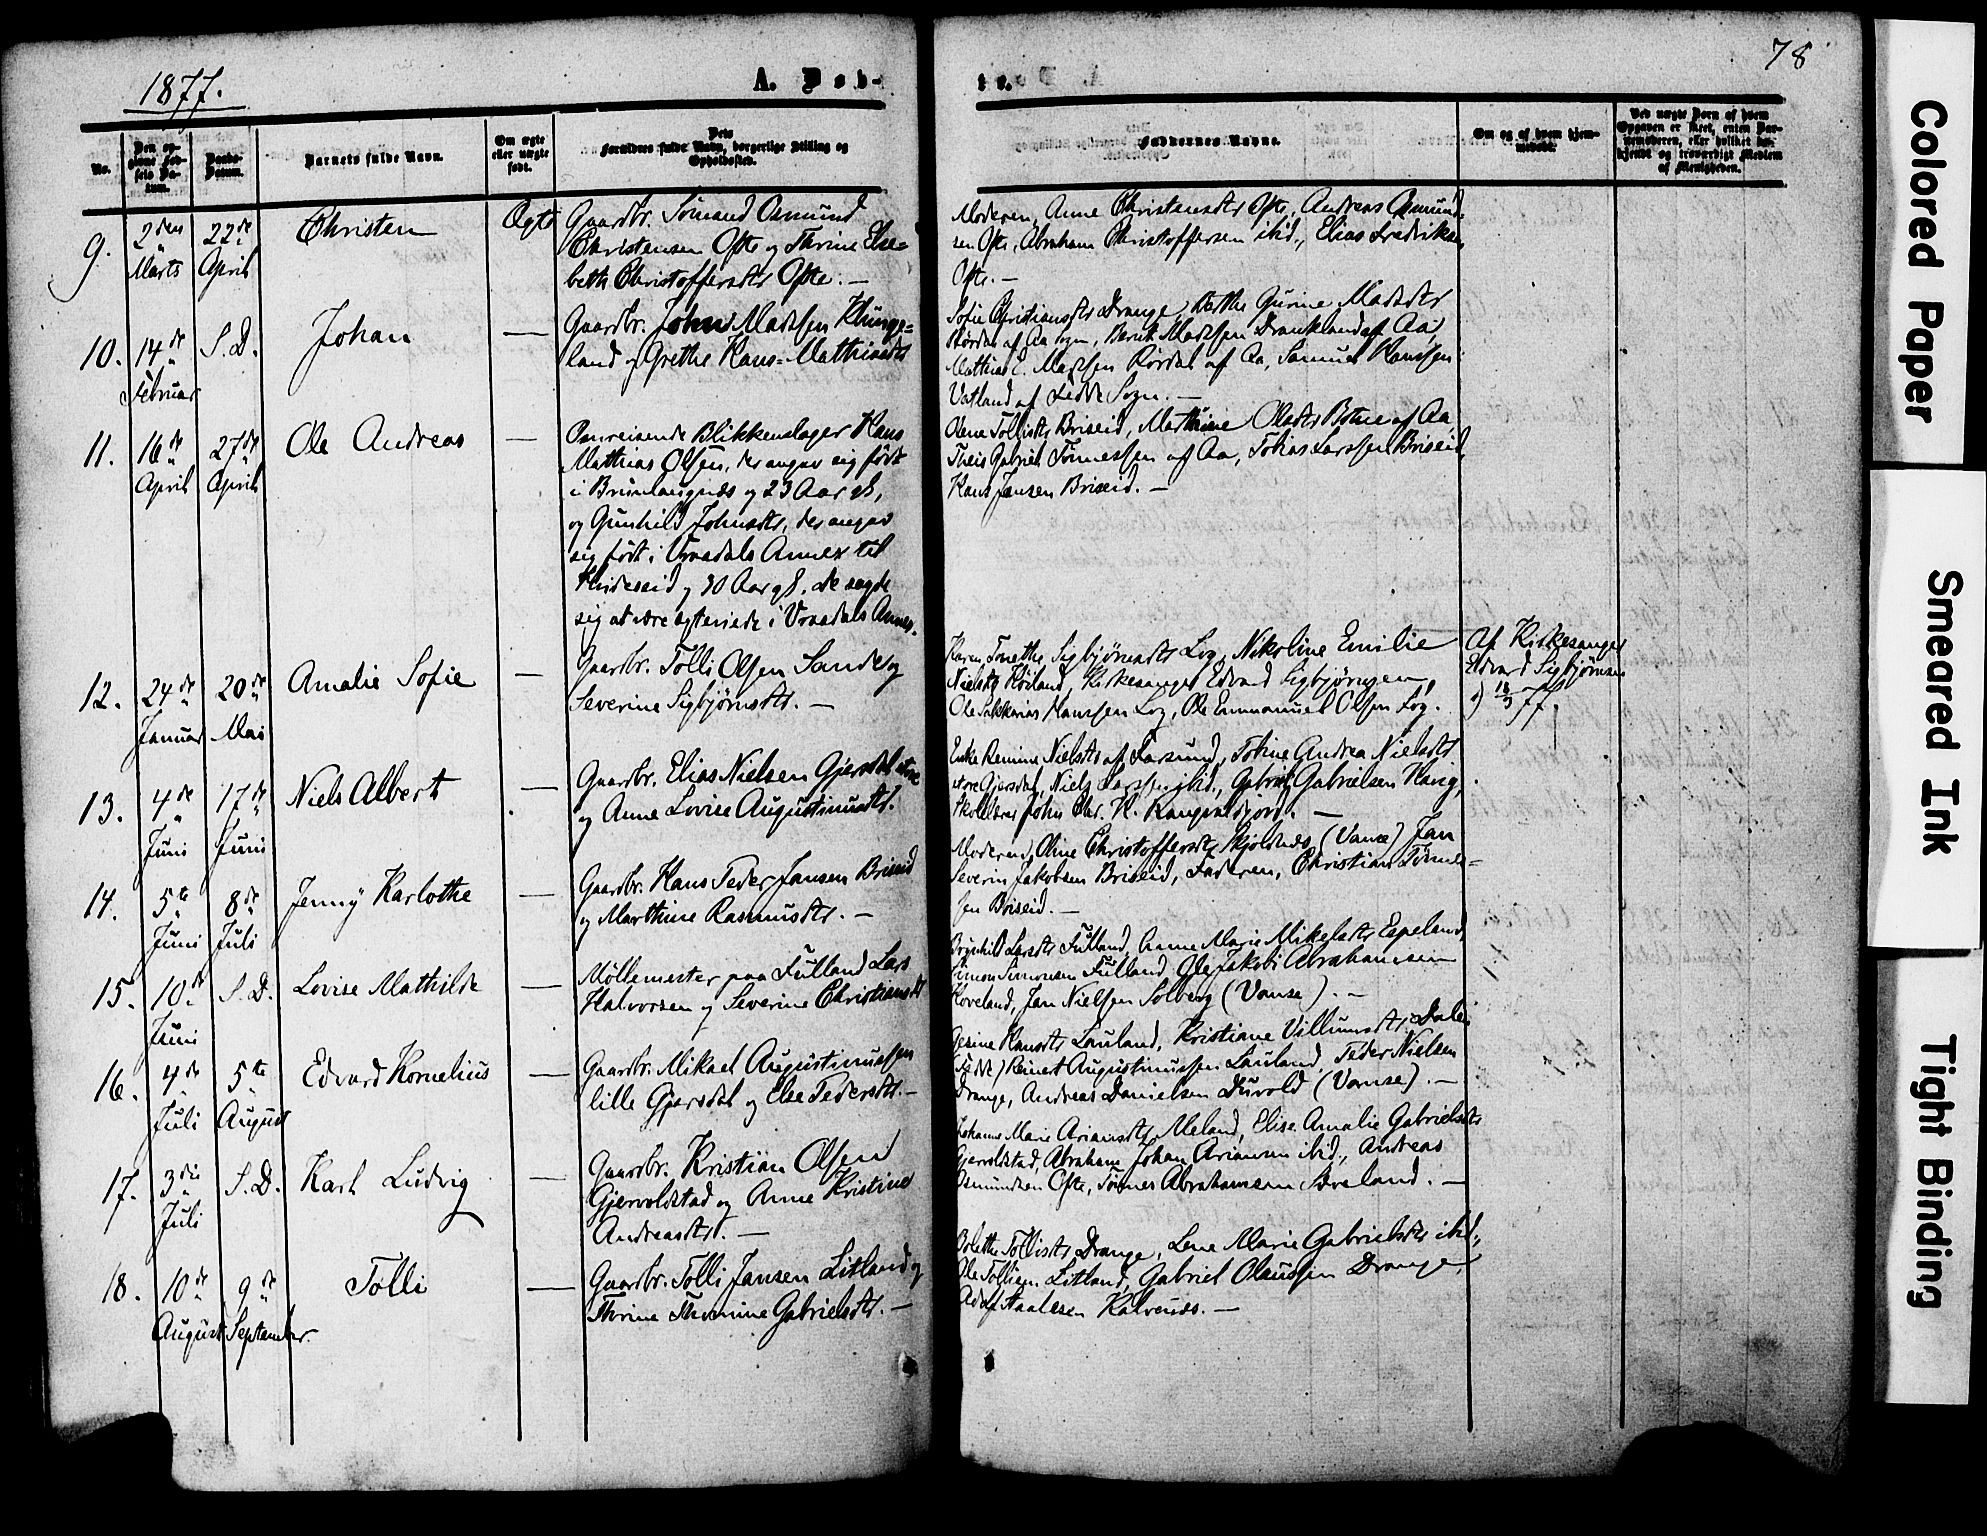 1877.
A. Døb-
te.
78
No.
Den op-
givne Fød-
sels Da-
tum.
Daabs-
Datum.
Barnets fulde Navn.
Om ægte
eller uægte
født.
Dets
Forældres fulde Navn, borgerlige Stilling og
Opholdssted.
Faddernes Navne.
Om og af hvem hjem-
medøbt.
Ved uægte Børn af hvem
Opgaven er skeet, enten Bar-
nemoderen, eller hvilket be-
kjendt og troværdigt Medlem
af Menigheden.
9.
2den
Marts
22de
April
Christen
Ægte
Gaardbr. Sømand Osmund
Christensen Ofte og Thrine Else-
beth Christoffersdtr Ofte. —
Moderen, Anne Christensdtr Ofte, Andreas Osmund-
sen Ofte, Abraham Christoffersen ibid., Elias Fredriksen
Ofte. —
10.
14de
Februar
S. D.
Johan
—
Gaardbr. John Madssen Klunge-
land og Grethe Hans-Mathiasdtr
Sofie Christiansdtr Drange, Berthe Gurine Madsdtr
Rørdal af Aa Sogn, Berut Madssen Drankland af Aa,
Matthias E. Madssen Rørdal af Aa, Samuel Hanssen
Vatland af Fedde Sogn. —
11.
16de
April
27de
April
Ole Andreas
—
Omreisende Blikkenslager Hans
Mathias Olsen, der angav sig født
i Brunlaugnæs og 23 Aar gl,
og Gunhild Johnsdtr, der angav
sig født i Vraadals Annex til
Hvideseid og 30 Aar gl. de sagde
sig at være ægteviede i Vraadals Annex.
Olene Tollisdtr Briseid, Marthine Olsdtr Botne af Aa,
Theis Gabriel Tønnessen af Aa, Tobias Larssen Briseid,
Hans Jansen Briseid. —
12.
24de
Januar
20de
Mai
Amalie Sofie
—
Gaardbr. Tolli Olsen Sande og
Severine Sigbjørnsdtr. —
Karen Tonethe Sigbjørnsdtr Log, Nikoline Emilie
Nielsdtr Høiland, Kirkesanger Edvard Sigbjørnsen,
Ole Sakkarias Hanssen Log, Ole Emmanuel Olsen Log.
Af Kirkesanger
Edvard Sigbjørnsen
13.
4de
Juni
17de
Juni
Niels Albert
—
Gaardbr. Elias Nielsen Gjersdal store
og Anne Lovise Augustinusdtr.
Enke Remine Nielsdtr af Farsund, Tobine Andrea Nielsdtr
store Gjersdal, Niels Larssen ibid., Gabriel Gabrielsen Haug,
Skolelærer John Chr. H. Rangvaldsjord. —
14.
5te
Juni
8de
Juli
Jenny Karlothe
—
Gaardbr. Hans Peder Jansen Briseid
og Marthine Rasmusdtr. —
Moderen, Oline Christoffersdtr Skjolnes (Vanse) Jan
Severin Jakobsen Briseid, Faderen, Christian Tønnes-
sen Briseid. —
15.
10de
Juni
S. D.
Lovise Mathilde
—
Møllemester paa Fuland Lars
Halvorsen og Severine Christiansdtr
Brynhild Larsdtr Fuland, Anne Marie Mikelsdtr Espeland,
Simon Simonsen Fuland, Ole Jakob Abrahamsen
Hoveland, Jan Nielsen Solberg (Vanse). —
16.
4de
Juli
5te
August
Edvard Kornelius
—
Gaardbr. Mikael Augustinussen
lille Gjersdal og Else Pedersdtr. —
Gesine Hansdtr Lauland, Kristiane Villumsdtr Dale
(Fedde) Reinert Augustinussen Lauland, Peder Nielsen
Drange, Andreas Danielsen Duvold (Vanse). —
17.
3die
Juli
S. D.
Karl Ludvig
—
Gaardbr. Kristian Olsen
Gjervoldstad og Anne Kristine
Andreasdtr. —
Johanne Marie Ariansdtr Meland, Elise Amalie Gabrielsdtr
Gjervoldstad, Abraham Johan Ariansen ibid., Andreas
Osmundsen Ofte, Tønnes Abrahamsen Braland. —
18.
10de
August
9de
September.
Tolli
—
Gaardbr. Tolli Jansen Litland og
Thrine Thomine Gabrielsdtr. —
Bolethe Tollisdtr Drange, Lene Marie Gabrielsdtr ibid.,
Ole Tollisen Litland, Gabriel Olaussen Drange,
Adolf Aalesen Kalvenes. —
Colored Paper
Smeared Ink
Tight Binding